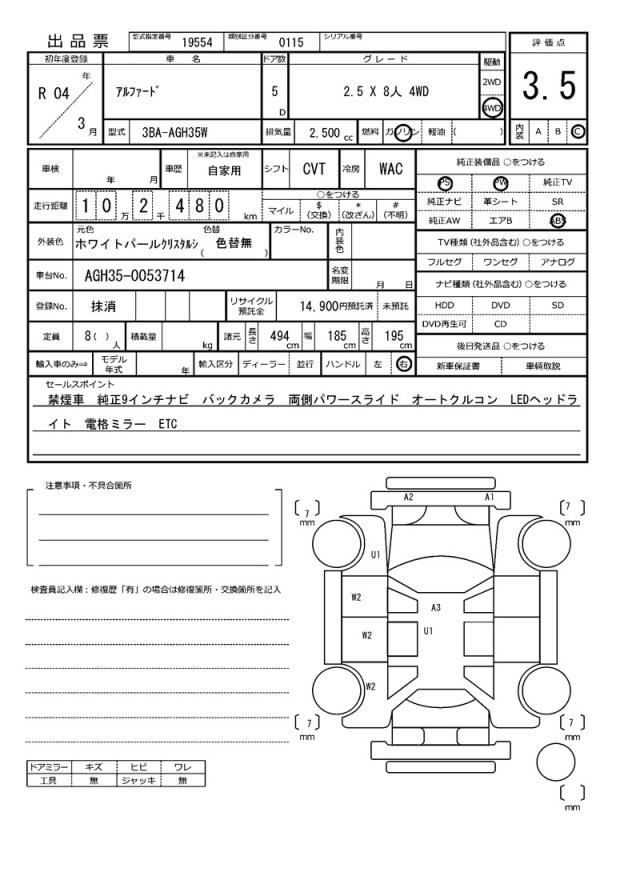 出品票
型式指定番号 19554 類別区分番号 0115 シリアル番号
評価点
3.5
内装 A B C
初年度登録 車名 ドア数 グレード 駆動
R 04 年 3 月
アルファード 5 D 2.5 X 8人 4WD
2WD
4WD
型式 3BA-AGH35W 排気量 2,500 cc 燃料 ガソリン 軽油 ( )
車検 年 月 車歴 ※未記入は自家用 自家用 シフト CVT 冷房 WAC
走行距離 10万2千480 km
○をつける
マイル $(交換) *(改ざん) #(不明)
外装色 元色 ホワイトパールクリスタルシ 色替 ( 色替無 ) カラーNo. 内装色
車台No. AGH35-0053714 名変期限 月 日
登録No. 抹消 リサイクル預託金 14,900円預託済 未預託
定員 8( ) 人 積載量 kg 諸元 長さ 494 cm 幅 185 cm 高さ 195 cm
輸入車のみ⇒ モデル年式 年 輸入区分 ディーラー 並行 ハンドル 左 右
純正装備品 ○をつける
PS PW 純正TV
純正ナビ 革シート SR
純正AW エアB ABS
TV種類 (社外品含む) ○をつける
フルセグ ワンセグ アナログ
ナビ種類 (社外品含む) ○をつける
HDD DVD SD
DVD再生可 CD
後日発送品 ○をつける
新車保証書 車輌取説
セールスポイント
禁煙車 純正9インチナビ バックカメラ 両側パワースライド オートクルコン LEDヘッドラ
イト 電格ミラー ETC
注意事項・不具合箇所
検査員記入欄：修復歴「有」の場合は修復箇所・交換箇所を記入
ドアミラー キズ ヒビ ワレ
工具 無 ジャッキ 無
A2 A1
7 mm
7 mm
U1
W2
A3
W2
U1
W2
7 mm
7 mm
mm